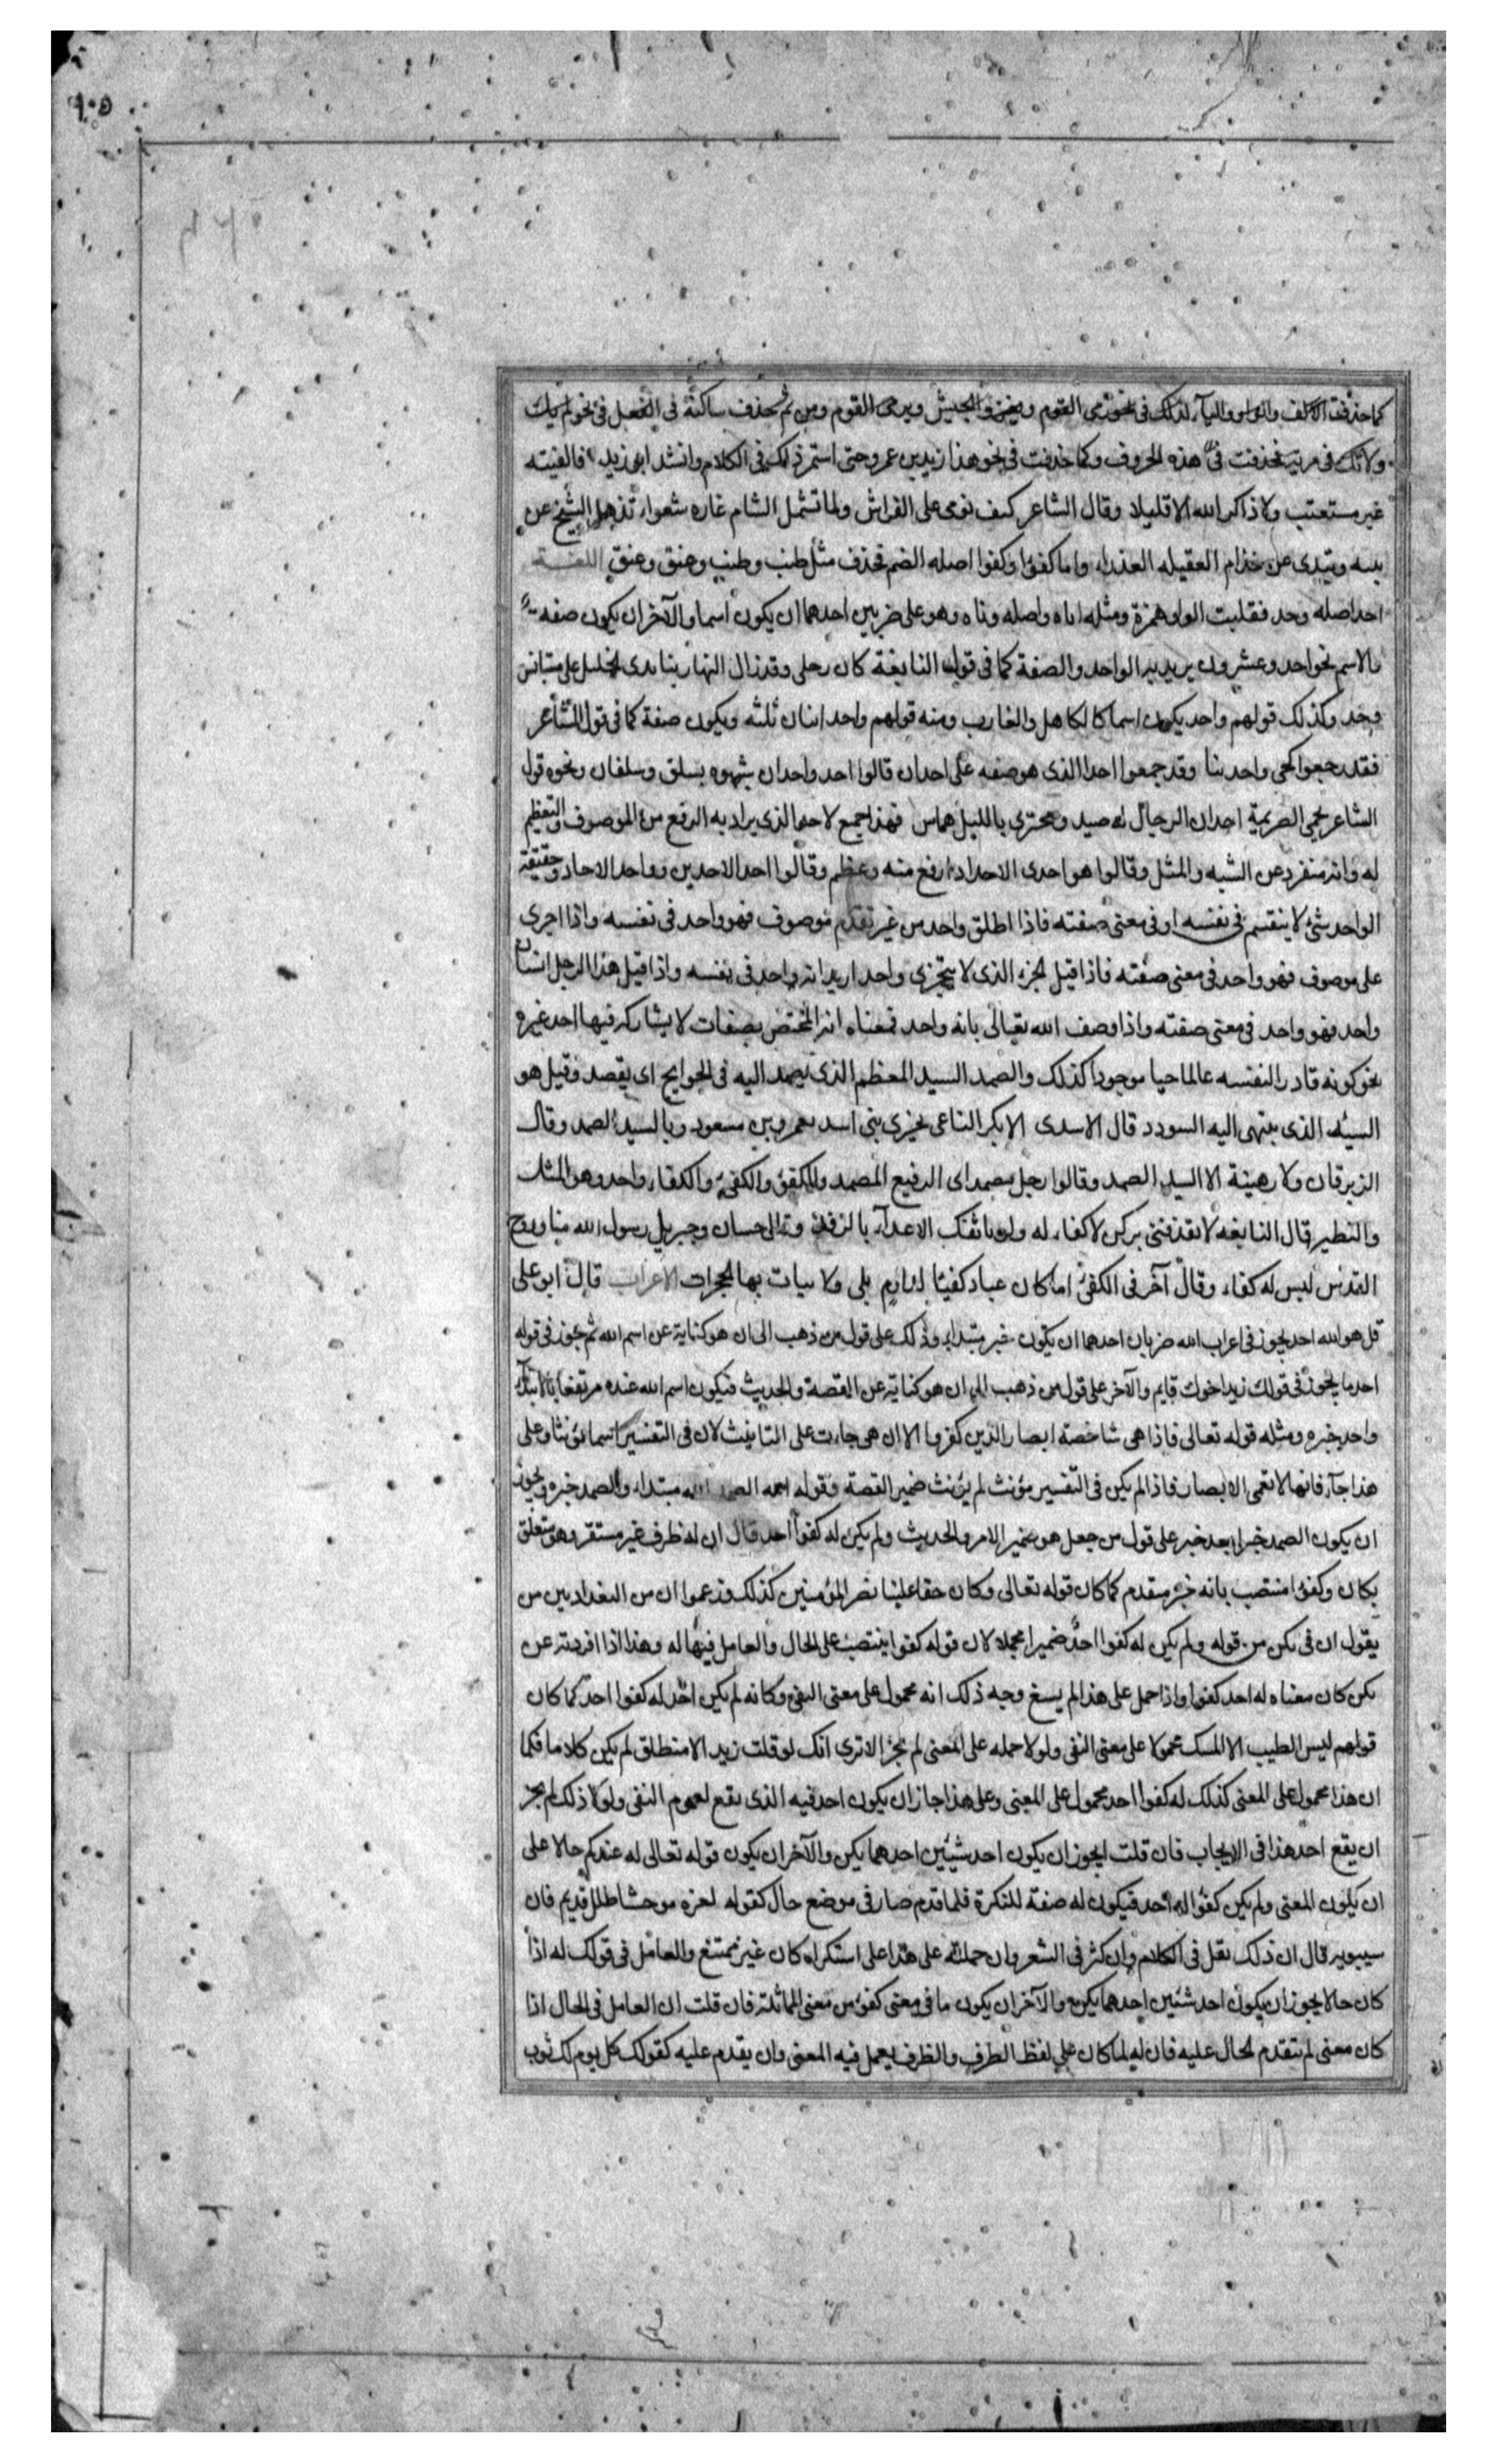 ٩٠٥
كما حذفت الالف والواو والياء لذلك فى نحو رمى القوم ويغزو الجيش ويرمى القوم ومن ثم حذف ساكنة فى الفعل فى نحو لم يك
ولاتك فى مرية فحذفت فى هذه الحروف وكما حذفت فى نحو هذا زيد بن عمرو حتى استمر ذلك فى الكلام وانشد ابو زيد فالفيته
غير مستعتب ولا ذاكر الله الا قليلا وقال الشاعر كيف نومى على الفراش ولما تشمل الشام غاره شعواء تذهل الشيخ عن
بنيه وتبدى عن خذام العقيله العذراء واما كفؤا وكفوا اصله الضم فخفف مثل طنب وطنب وعنق وعنق اللغــة
احد اصله وحد فقلبت الواو همزة ومثله اناه واصله وناه وهو على ضربين احدهما ان يكون اسما والآخر ان يكون صفه
فالاسم نحو احد وعشرون يريد به الواحد والصفة كما فى قول النابغة كان رحلى وقد زال النهار بنا بذى الجليل على مستانس
وحد وكذلك قولهم واحد يكون اسما كالكاهل والغارب ومنه قولهم واحد اثنان ثلثه ويكون صفة كما فى قول الشاعر
فقد رجعوا كحى واحدينا وقد جمعوا احدا الذى هو صفه على احدان قالوا احد واحدان شبهوه بسلق وسلقان ونحوه قول
الشاعر يحمى الصريمة احدان الرجال له صيد ومجترى بالليل هماس فهذا جمع لاحد الذى يراد به الرفع من الموصوف والتعظيم
له وانه منفرد عن الشبه والمثل وقالوا هو احدى الاحد اذا رفع منه وعظم وقالوا احد الاحدين وواحد الاحاد وحقيقة
الواحد شئ لا ينقسم فى نفسه او فى معنى صفته فاذا اطلق واحد من غير تقدم موصوف فهو واحد فى نفسه واذا اجرى
على موصوف فهو واحد فى معنى صفته فاذا قيل الجزء الذى لا يتجزى واحد اريد انه واحد فى نفسه واذا قيل هذا الرجل انسان
واحد فهو واحد فى معنى صفته واذا وصف الله تعالى بانه واحد فمعناه انه المختص بصفات لا يشاركه فيها احد غيره
نحو كونه قادرا لنفسه عالما حيا موجودا كذلك والصمد السيد المعظم الذى يصمد اليه فى الحوايج اى يقصد وقيل هو
السيد الذى ينتهى اليه السودد قال الاسدى الا بكر الناعى بخيرى بنى اسد بعمرو بن مسعود وبالسيد الصمد وقال
الزبرقان ولا رهينة الا السيد الصمد وقالوا رجل مصمد اى الرفيع المصمد والكفؤ والكفئ والكفاء واحد وهو المثل
والنظير قال النابغه لا تقذفنى بركن لا كفاء له ولو تاثفك الاعداء بالرفد وقال حسان وجبريل رسول الله منا وروح
القدس ليس له كفاء وقال آخر فى الكفئ اما كان عباد كفيئا لدارم بلى ولابيات بها الحجرات الاعراب قال ابو على
قل هو الله احد يجوز فى اعراب الله ضربان احدهما ان يكون خبر مبتداء وذلك على قول من ذهب الى ان هو كناية عن اسم الله ثم يجوز فى قوله
احد ما يجوز فى قولك زيد اخوك قايم والآخر على قول من ذهب الى ان هو كناية عن القصة والحديث فيكون اسم الله عنده مرتفعا بالابتداء
واحد خبره ومثله قوله تعالى فاذا هى شاخصة ابصار الذين كفروا الا ان هى جاءت على التانيث لان فى التفسير اسما مؤنثا وعلى
هذا جاء فانها لا تعمى الابصار فاذا لم يكن فى التفسير مؤنث لم يؤنث ضمير القصة وقوله الله الصمد الله مبتداء والصمد خبره ويجوز
ان يكون الصمد خبرا بعد خبر على قول من جعل هو ضمير الامر والحديث ولم يكن له كفوا احد قال ان له ظرف غير مستقر وهو متعلق
بكان وكفؤا منتصب بانه خبر مقدم كما كان قوله تعالى وكان حقا علينا نصر المؤمنين كذلك وزعموا ان من البغداديين من
يقول ان فى يكن من قوله ولم يكن له كفوا احد ضميرا مجهلا لان قوله كفوا ينتصب على الحال والعامل فيها له وهذا اذا افردته عن
يكن كان معناه له احد كفوا واذا حمل على هذا لم يسغ وجه ذلك انه محمول على معنى النفى وكانه لم يكن احد له كفوا احد كما كان
قولهم ليس الطيب الا المسك محمولا على معنى النفى ولولا حمله على المعنى لم يجز الا ترى انك لو قلت زيد الا منطلق لم يكن كلاما فكما
ان هذا محمول على المعنى كذلك له كفوا احد محمول على المعنى وعلى هذا جاز ان يكون احد فيه الذى يقع لعموم النفى ولولا ذلك لم يجز
ان يقع احد هذا فى الايجاب فان قلت ايجوز ان يكون احد شيئين احدهما يكن والآخر ان يكون قوله تعالى له عندكم حالا على
ان يكون المعنى ولم يكن كفؤا له احد فيكون له صفة للنكرة فلما قدم صار فى موضع حال كقوله لعزه موحشا طلل قديم فان
سيبويه قال ان ذلك يقل فى الكلام وان كثر فى الشعر وان حملته على هذا على استكراه كان غير ممتنع والعامل فى قولك له اذا
كان حالا يجوز ان يكون احد شيئين احدهما يكن والآخر ان يكون ما فى معنى كفؤ من معنى المماثلة فان قلت ان العامل فى الحال اذا
كان معنى لم تتقدم الحال عليه فان له لما كان على لفظ الظرف والظرف يعمل فيه المعنى وان يقدم عليه كقولك كل يوم لك ثوب